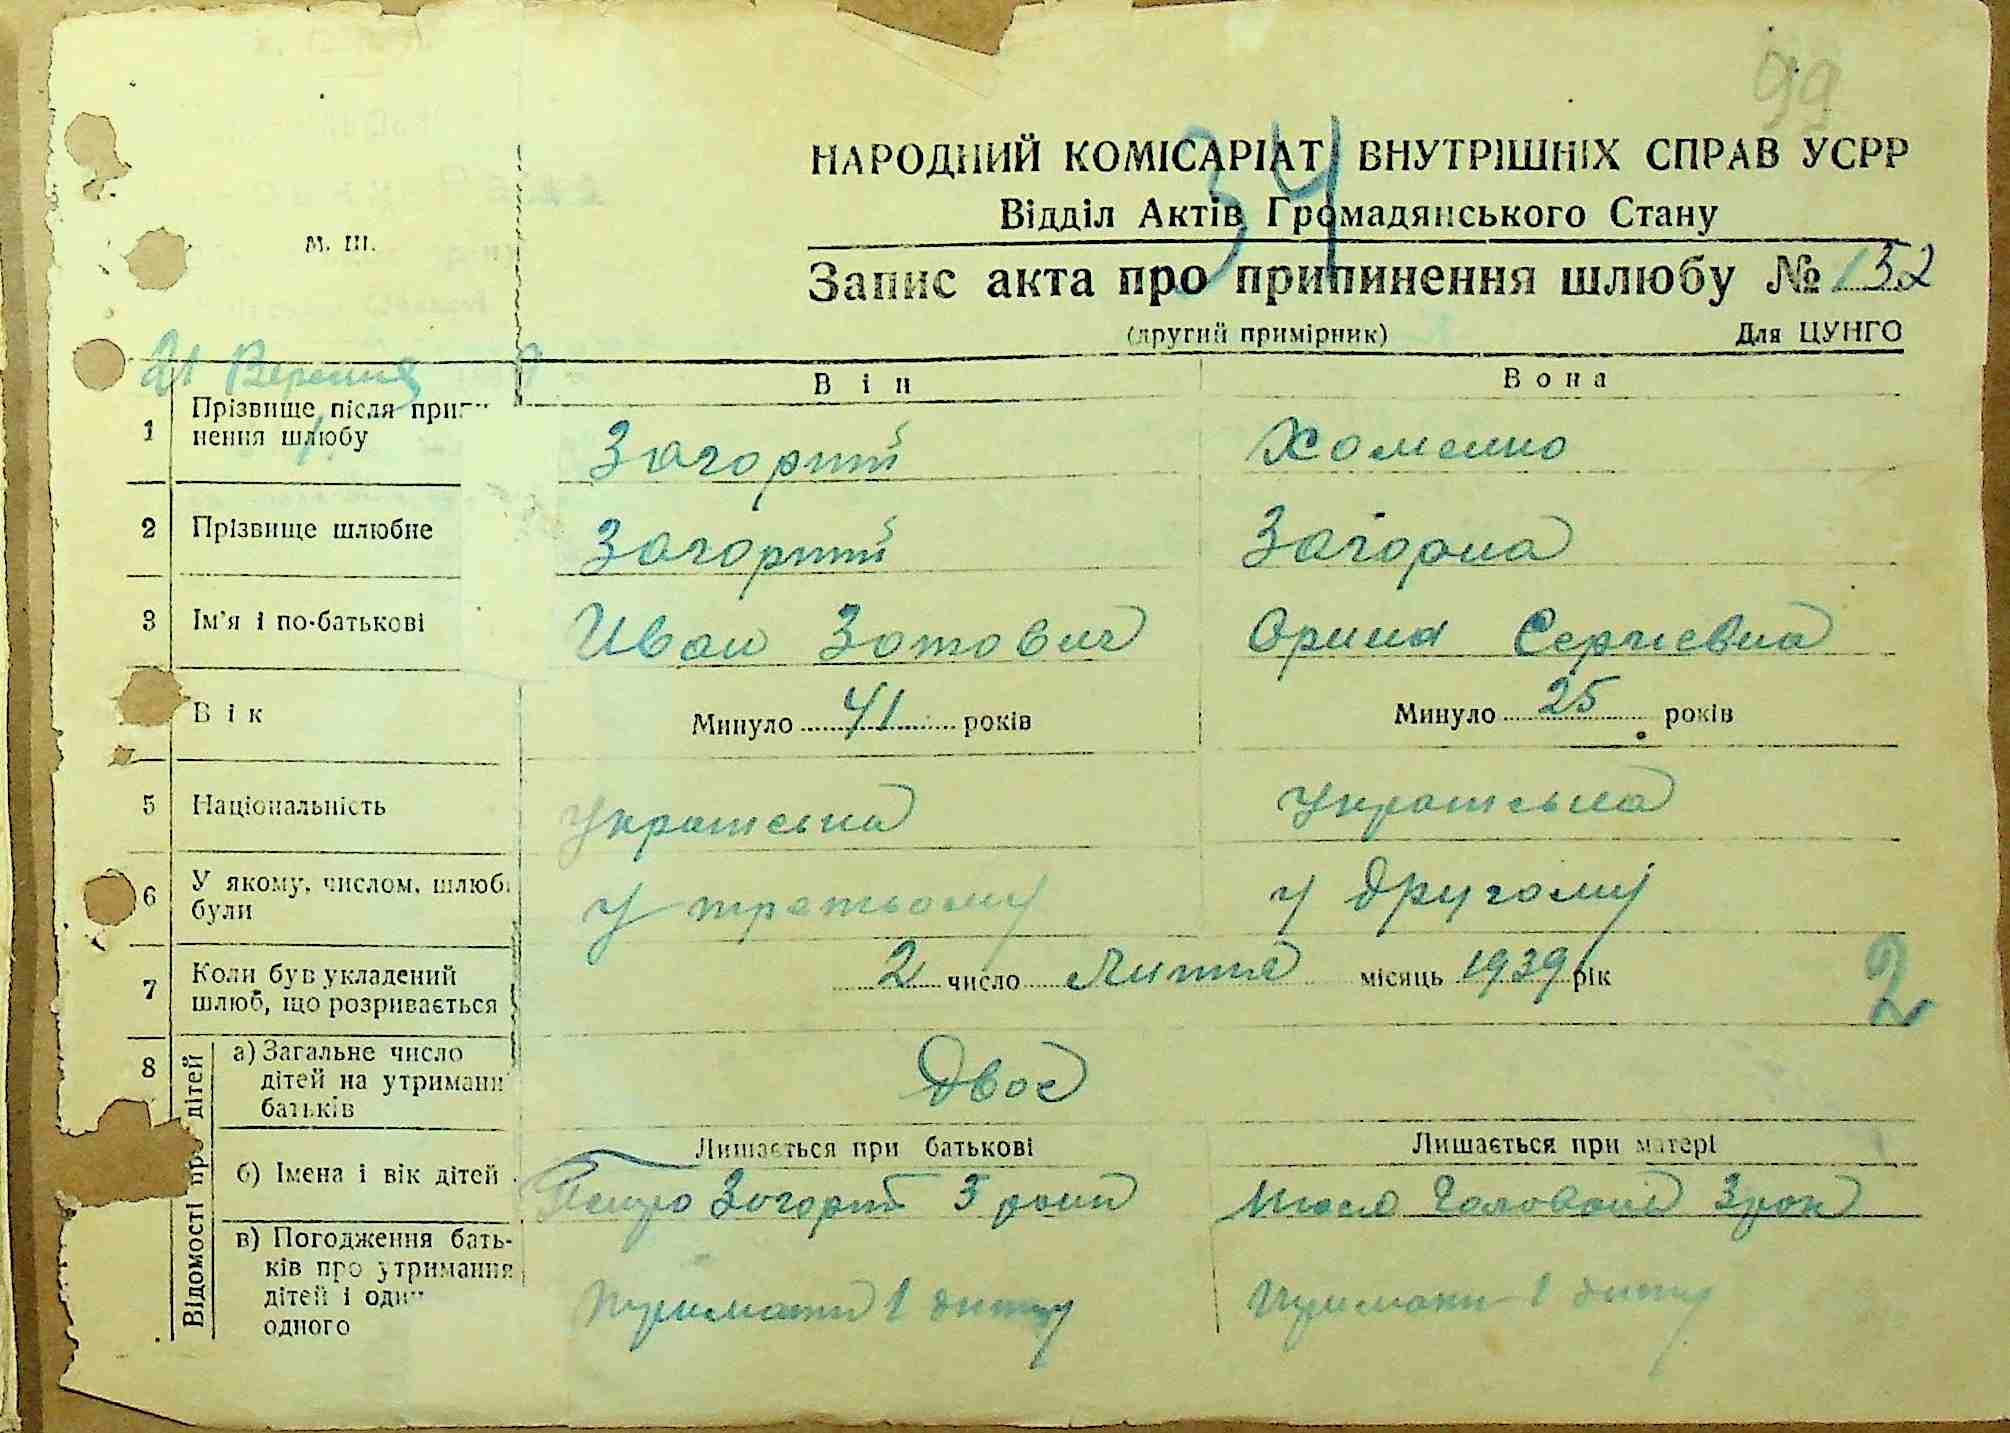 99
НАРОДНИЙ КОМІСАРІАТ ВНУТРІШНІХ СПРАВ УСРР
34
Відділ Актів Громадянського Стану
М. Ш.
Запис акта про припинення шлюбу № 152
(другий примірник) Для ЦУНГО
21 Вересня
Він Вона
1 Прізвище після припи-
нення шлюбу
Загорний Хоменко
2 Прізвище шлюбне Загорний Загорна
3 Ім'я і по-батькові Иван Зотович Орина Сергіевна
Вік Минуло 41 років Минуло 25 років
5 Національність Украінська Украінська
6 У якому, числом, шлюбі
були
у третьому у другому
7 Коли був укладений
шлюб, що розривається
2 число Липня місяць 1939 рік
2
8 Відомості про дітей
а) Загальне число
дітей на утриманні
батьків
Двоє
Лишається при батькові Лишається при матері
б) Імена і вік дітей Загорний роки 3 рок
в) Погодження бать-
ків про утримання
дітей і один
одного
1 дитину 1 дитину